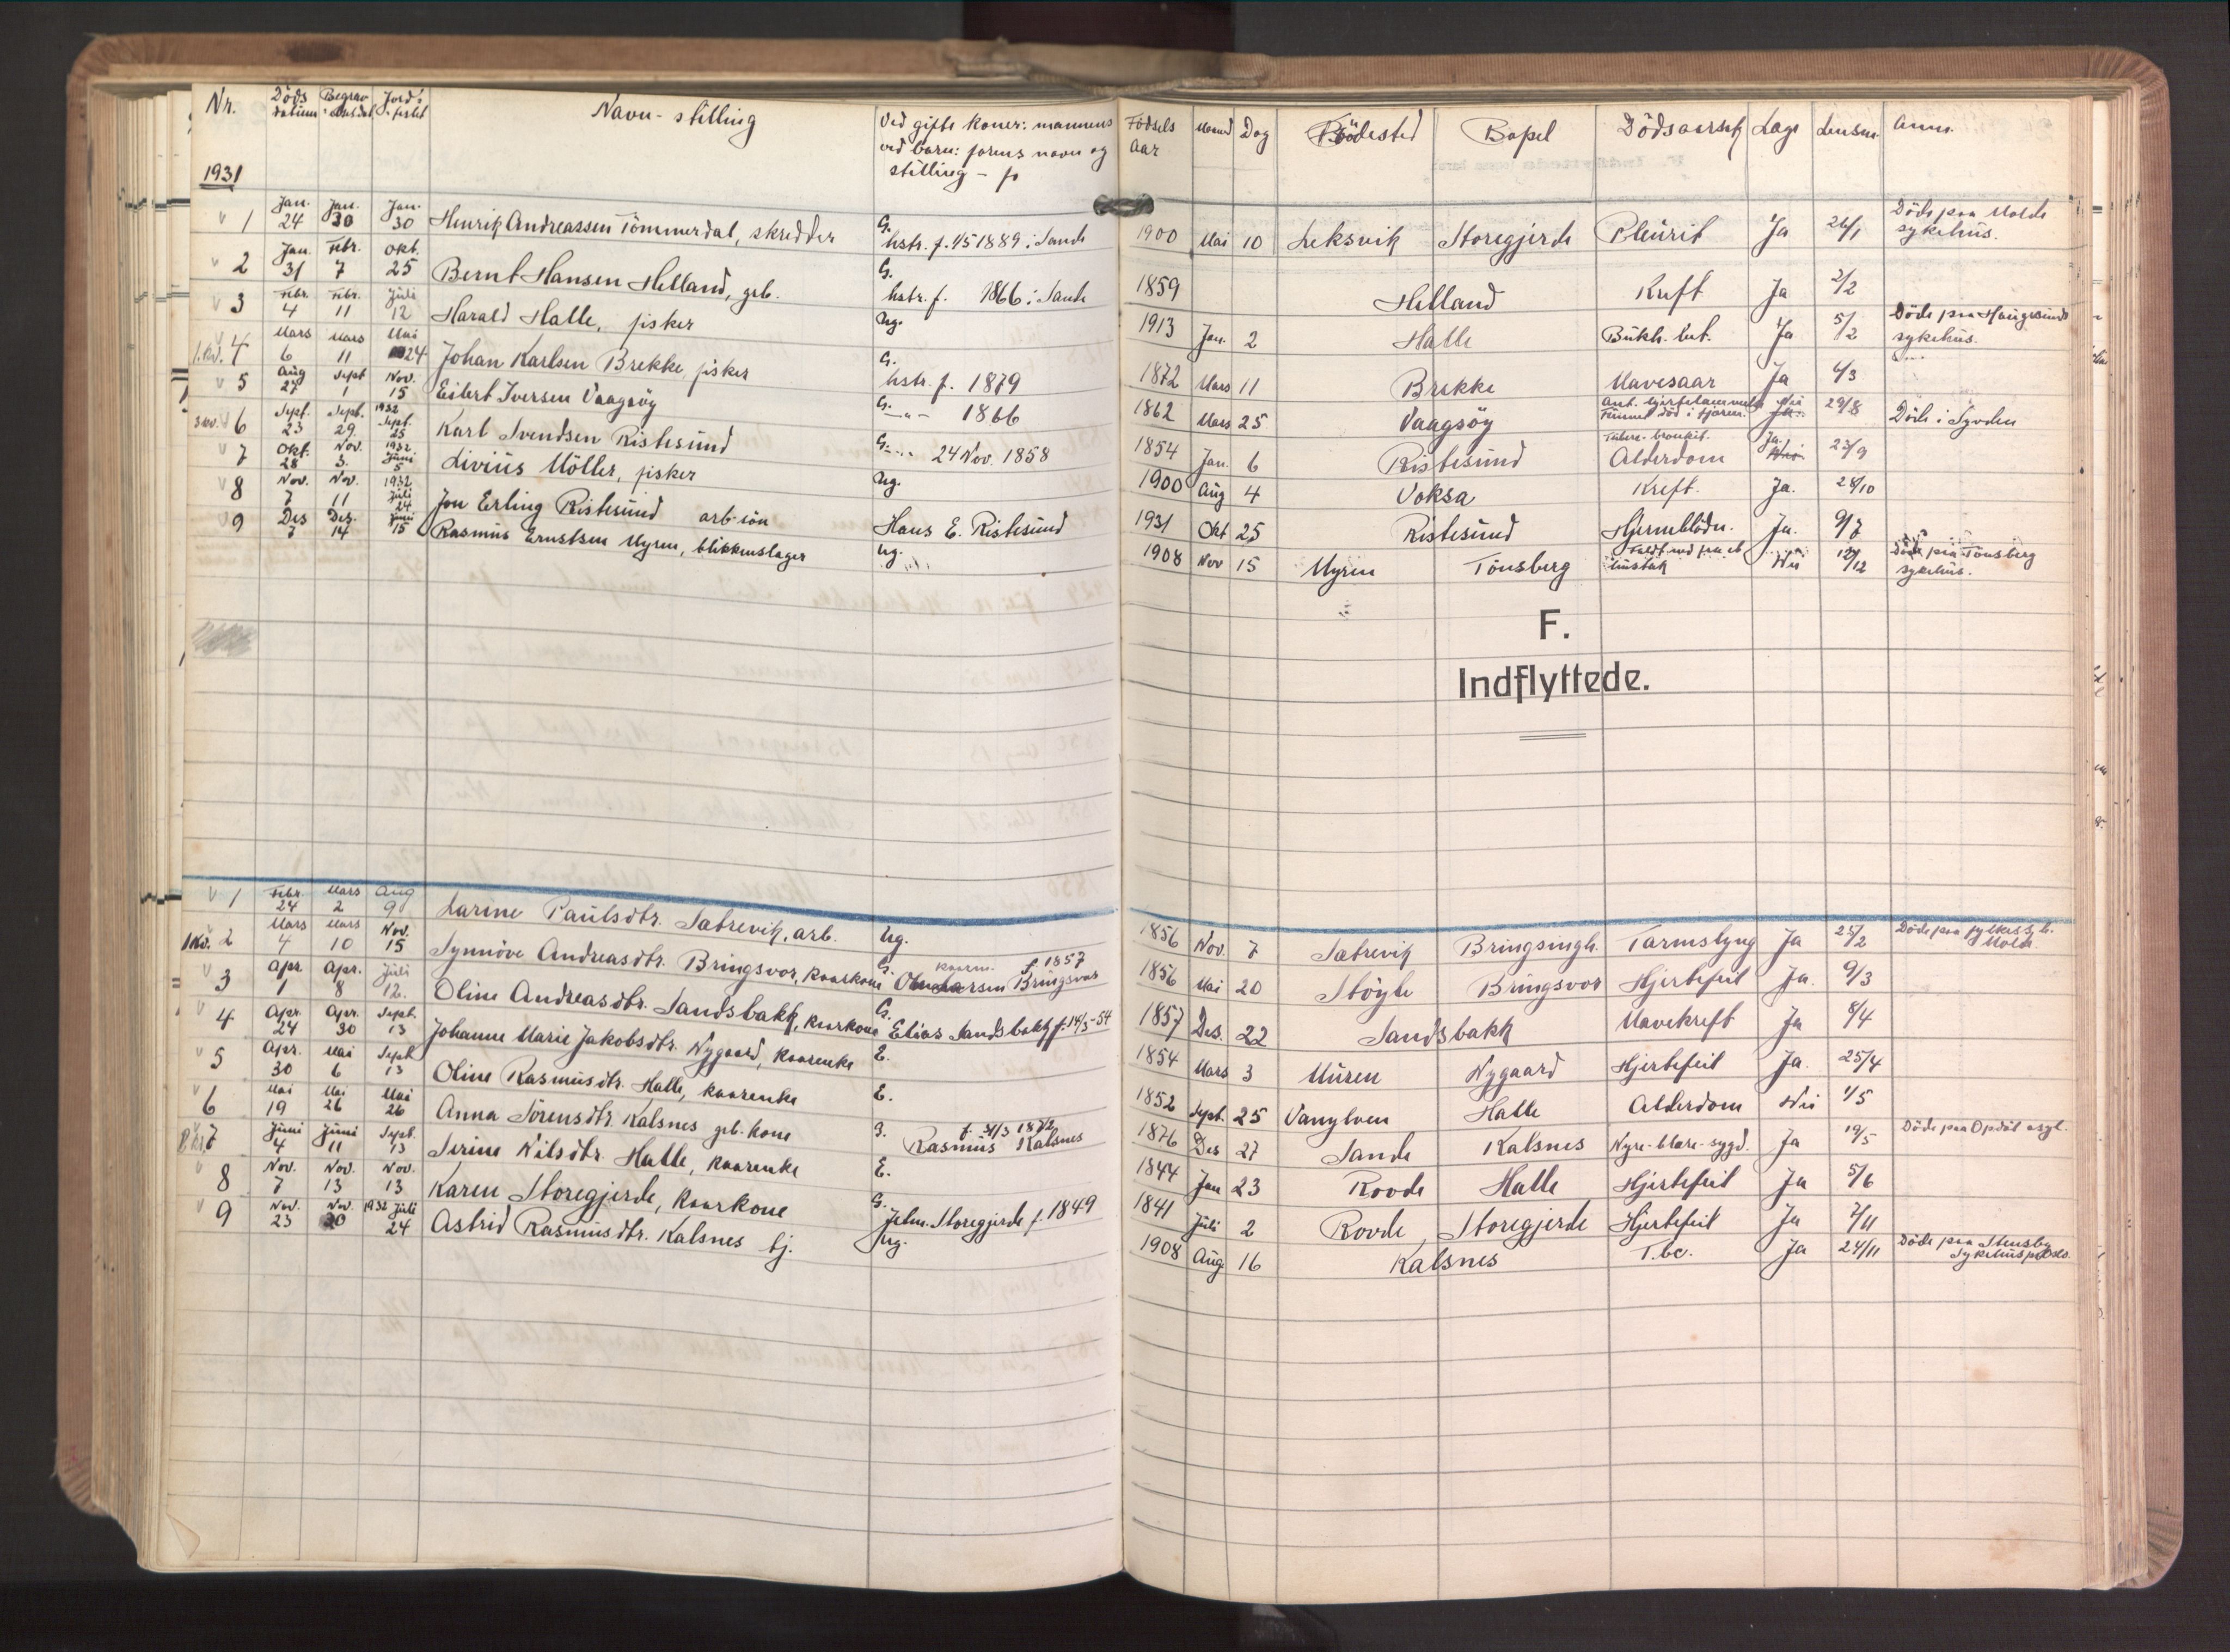 Nr. Döds datum Begrav Jord Navn - stilling Ved gifte koner: mannens ved barn: farens navn og stilling - f Födsels Aar Maaned Dag Födested Bopel Dödsaarsak Læge Lensm. Anm.
1931
1 Jan. 24 Jan. 30 Jan. 30 Henrik Andreassen Tömmerdal, skredder G. hstr. f. 1/5 1889 i Sande 1900 Mai 10 Leksvik Storegjerde Pleurit Ja 26/1 Döde paa Molde sykehus.
2 Jan. 31 Febr. 7 Okt. 25 Bernt Hansen Helland, grb. G. hstr. f. 1866 i Sande 1859 Helland Kreft Ja 2/2
3 Febr. 4 Febr. 11 Juli 12 Harald Halle, fisker Ug. 1913 Jan. 2 Halle Bukh. bet. Ja 5/2 Döde paa Haugesund sykehus.
4 Mars 6 Mars 11 Mai 24 Johan Karlsen Brekke, fisker G. hstr. f. 1879 1872 Mars 11 Brekke Mavesaar Ja 6/3
5 Aug 27 Sept 1 Nov. 15 Eilert Iversen Vaagsöy G. -"- 1866 1862 Mars 25 Vaagsöy Funnet död i fjæren. Nei 29/8 Döde i Syvden
6 Sept. 23 Sept. 29. 1932 Sept. 25 Karl Svendsen Ristesund G. -"- 24 Nov. 1858 1854 Jan. 6 Ristesund Alderdom Ja. 23/9
7 Okt. 28 Nov. 3. 1932 Juni 5 Livius Möller, fisker Ug. 1900 Aug 4 Voksa Kreft. Ja. 28/10
8 Nov. 7 Nov. 11 1932 Juli 24 Jon Erling Ristesund arb-sön Hans E. Ristesund 1931 Okt 25 Ristesund Hjerneblödn. Ja. 9/7
9 Des 7 Des. 14 Juni 15 Rasmus Ernstsen Myren, blikkenslager Ug. 1908 Nov 15 Myren Tönsberg Faldt ned fra et hustak Nei 12/12 Döde paa Tönsberg sykehus.
F.
Indflyttede.
1 Febr. 24 Mars 2 Aug 9 Larine Paulsdtr. Sætrevik, arb. Ug. 1856 Nov. 7 Sætrevik Bringsingh. Tarmslyng Ja 25/2 Döde paa fylkessyh. Molde
2 Mars 4 Mars 10 Nov. 15 Synnöve Andreasdtr. Bringsvor, kaarkone G. kaarm. f. 1857 Bringsvor 1856 Mai 20 Stöyle Bringsvor Hjertefeil Ja. 9/3
3 Apr 1 Apr. 8 Juli 12. Oline Andreasdtr. Sandsbakk, kaarkone G. Elias Sandsbakk f. 14/3-54 1857 Des. 22 Sandsbakk Mavekreft Ja 8/4
4 Apr. 24 Apr. 30 Sept. 13 Johanne Marie Jakobsdtr. Nygaard, kaarenke E. 1854 Mars 3 Muren Nygaard Hjertefeil Ja. 25/4
5 Apr. 30 Mai 6 Sept 13 Oline Rasmusdtr. Halle, kaarenke E. 1852 Sept. 25 Vanylven Halle Alderdom Nei 1/5
6 Mai 19 Mai 26 Mai 26 Anna Sörensdtr. Kalsnes grb. kone G. Rasmus Kalsnes f. 31/3 1872 1876 Des 27 Sande Kalsnes Nyre-blære-sygd. Ja 19/5 Döde paa Opdöl asyl.
7 Juni 4 Juni 11 Sept. 13 Serine Nilsdtr. Halle, kaarenke E. 1844 Jan 23 Rovde Halle Hjertefeil Ja 5/6
8 Nov. 7 Nov. 13 Nov. 13 Karen Storegjerde, kaarkone G. Jetm. Storegjerde f. 1849 1841 Juli 2 Rovde Storegjerde Hjertefeil Ja 7/11
9 Nov. 23 Nov. 30 1932 Juli 24 Astrid Rasmusdtr. Kalsnes tj. Ug. 1908 Aug 16 Kalsnes T.bc. Ja 24/11 Döde paa Stensby Sykehus